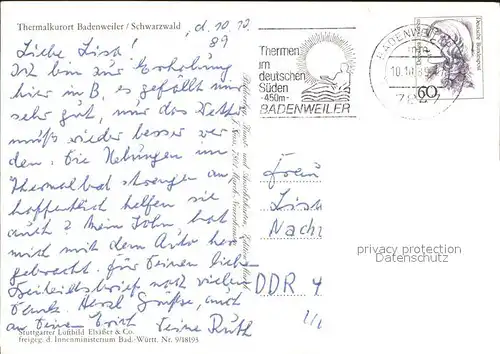 Thermalkurort Badenweiler / Schwarzwald
, d. 10.10.
89
Liebe Lisa!
Ich bin zur Erholung
hier in B, es gefällt mir
sehr gut, nur das Wetter
muß wieder besser wer
den. Die Uebungen im
Thermalbad strengen an
hoffentlich helfen sie
auch? Mein Sohn, hat
mich mit dem Auto her
gebracht. Für Deinen lieben
noch vielen
Dank. Herzl Grüße, auch
an Deinen Erich Deine Ruth
Stuttgarter Luftbild Elsäßer & Co.
freigeg. d. Innenministerium Bad.-Württ. Nr. 9/18193
Thermen
im
deutschen
Süden
-450m-
BADENWEILER
BADENWEILER
10.10.89
Deutsche Bundespost
60
Frau
Nach
DDR 4
privacy protection
Datenschutz